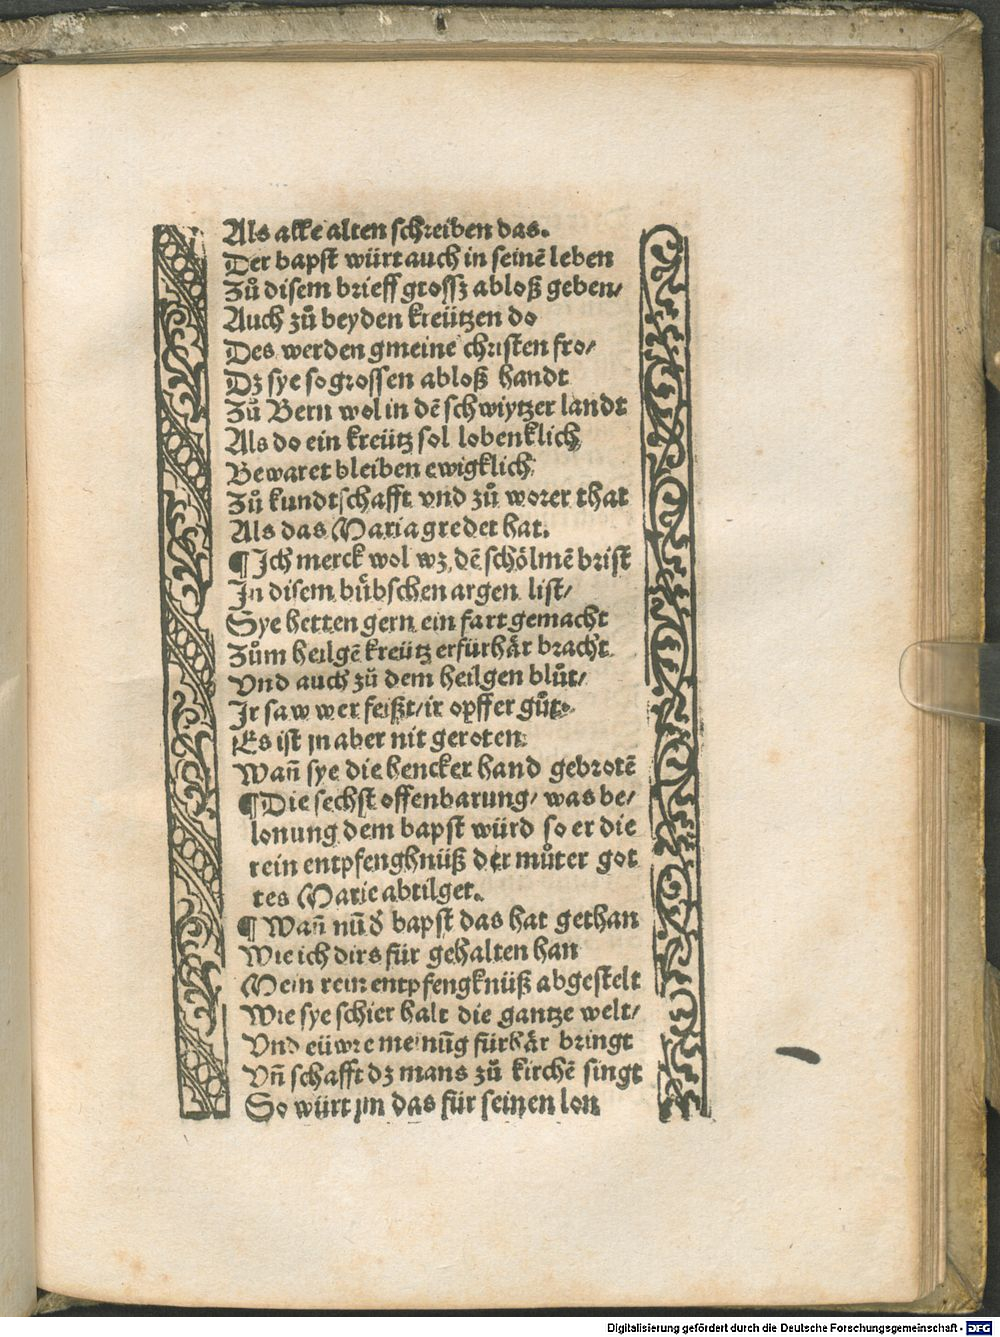 Als alle alten schreiben das.
Der bapst würt auch in seinē leben
Zů disem brieff grossz abloß geben/
Auch zů beyden kreützen do
Des werden gmeine christen fro/
Dz sye so grossen abloß handt
Zů Bern wol in dē schwiytzer landt
Als do ein kreütz sol lobenklich
Bewaret bleiben ewigklich
Zů kundtschafft vnd zů worer that
Als das Maria gredet hat.
¶ Ich merck wol wz dē schölmē brist
In disem bůbschen argen list/
Sye hetten gern ein fart gemacht
Zům heilgē kreütz erfürhår bracht
Vnd auch zů dem heilgen blůt/
Ir saw wer feißt/ ir opffer gůt.
Es ist jn aber nit geroten
Wañ sye die hencker hand gebrotē
¶ Die sechst offenbarung/ was be/
lonung dem bapst würd so er die
rein entpfenghnüß der můter got
tes Marie abtilget.
¶ Wañ nũ d̓ bapst das hat gethan
Wie ich dirs für gehalten han
Mein rein entpfengknüß abgestelt
Wie sye schier halt die gantze welt/
Vnd eüwre meinũg fürhår bringt
Vñ schafft dz mans zů kirchē singt
So würt jm das für seinen lon
Digitalisierung gefördert durch die Deutsche Forschungsgemeinschaft - DFG